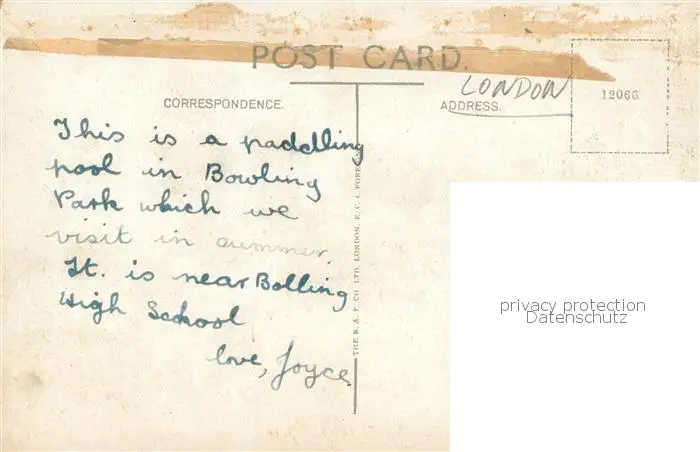 POST CARD.
LONDON
CORRESPONDENCE.
ADDRESS.
12066
This is a paddling
pool in Bowling
Park which we
visit in summer.
It. is near Bolling
High School
love, Joyce.
THE R. A. P. CO. LTD, LONDON, E. C. 4. FOREIGN
privacy protection
Datenschutz